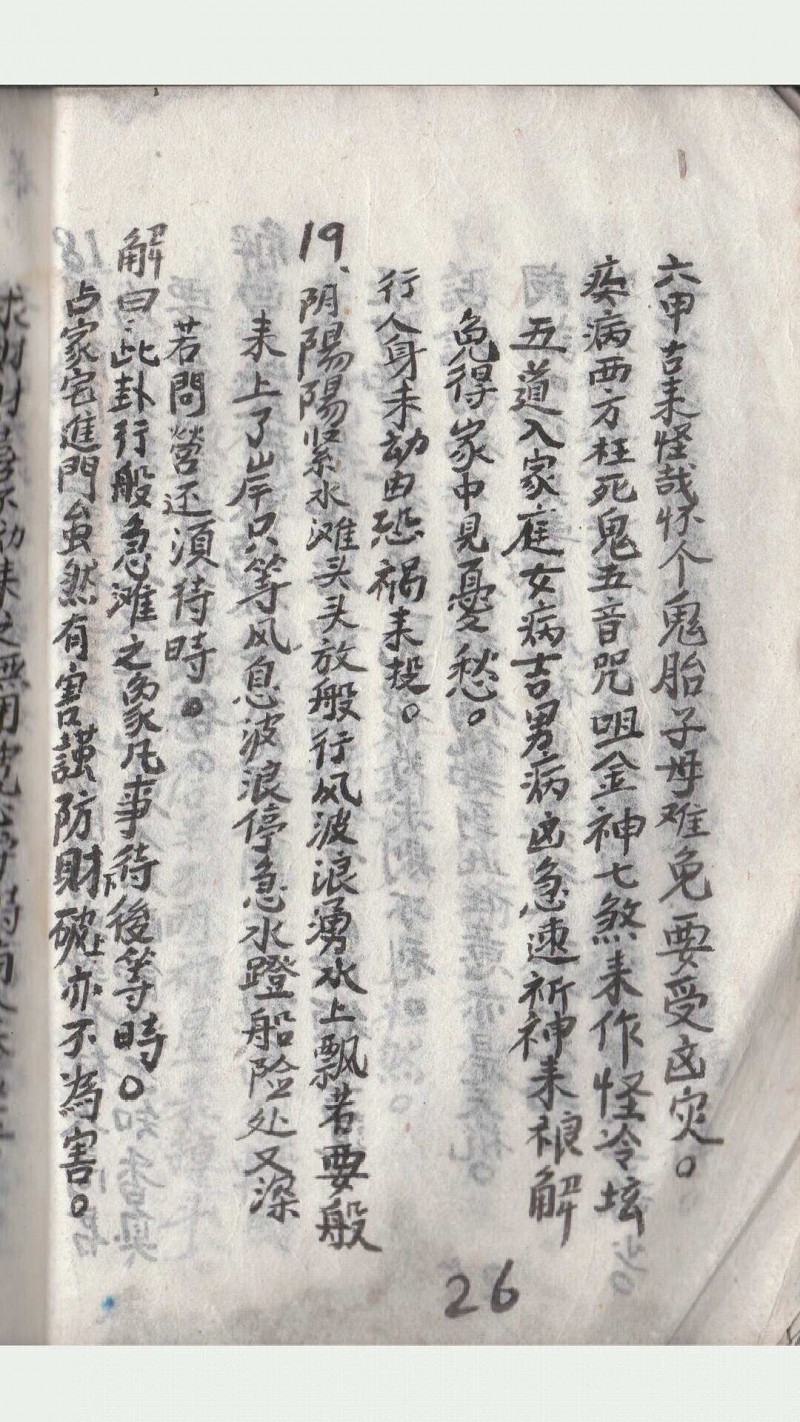 六甲吉耒怪哉怀个鬼胎子母难免要受凶灾。
疾病西方枉死鬼五音咒咀金神七煞耒作怪冷坛
五道入家庭女病吉男病凶急速祈神耒禳解
免得家中見憂愁。
行人身未动由恐祸耒投。
19、阴陽陽紧水滩头头放般行风波浪湧水上飘若要般
耒上了岸只等风息波浪停急水蹬船险处又深
若問營还須待時。
解曰:此卦行般急滩之象凡事待後等時。
占家宅進門虽然有害謹防財下破上亦不為害。
26